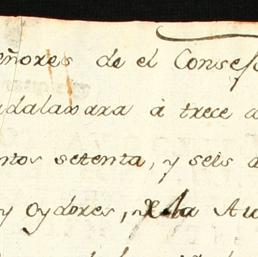 eñores de el Consejo
adalaxara à trece d
ntos setenta, y seis a
y oydores, de la Au